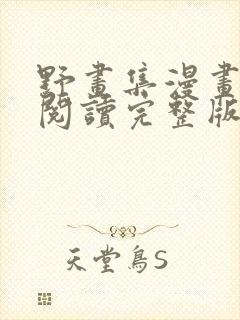 野畫集漫畫
閱讀完整版
天堂鳥S